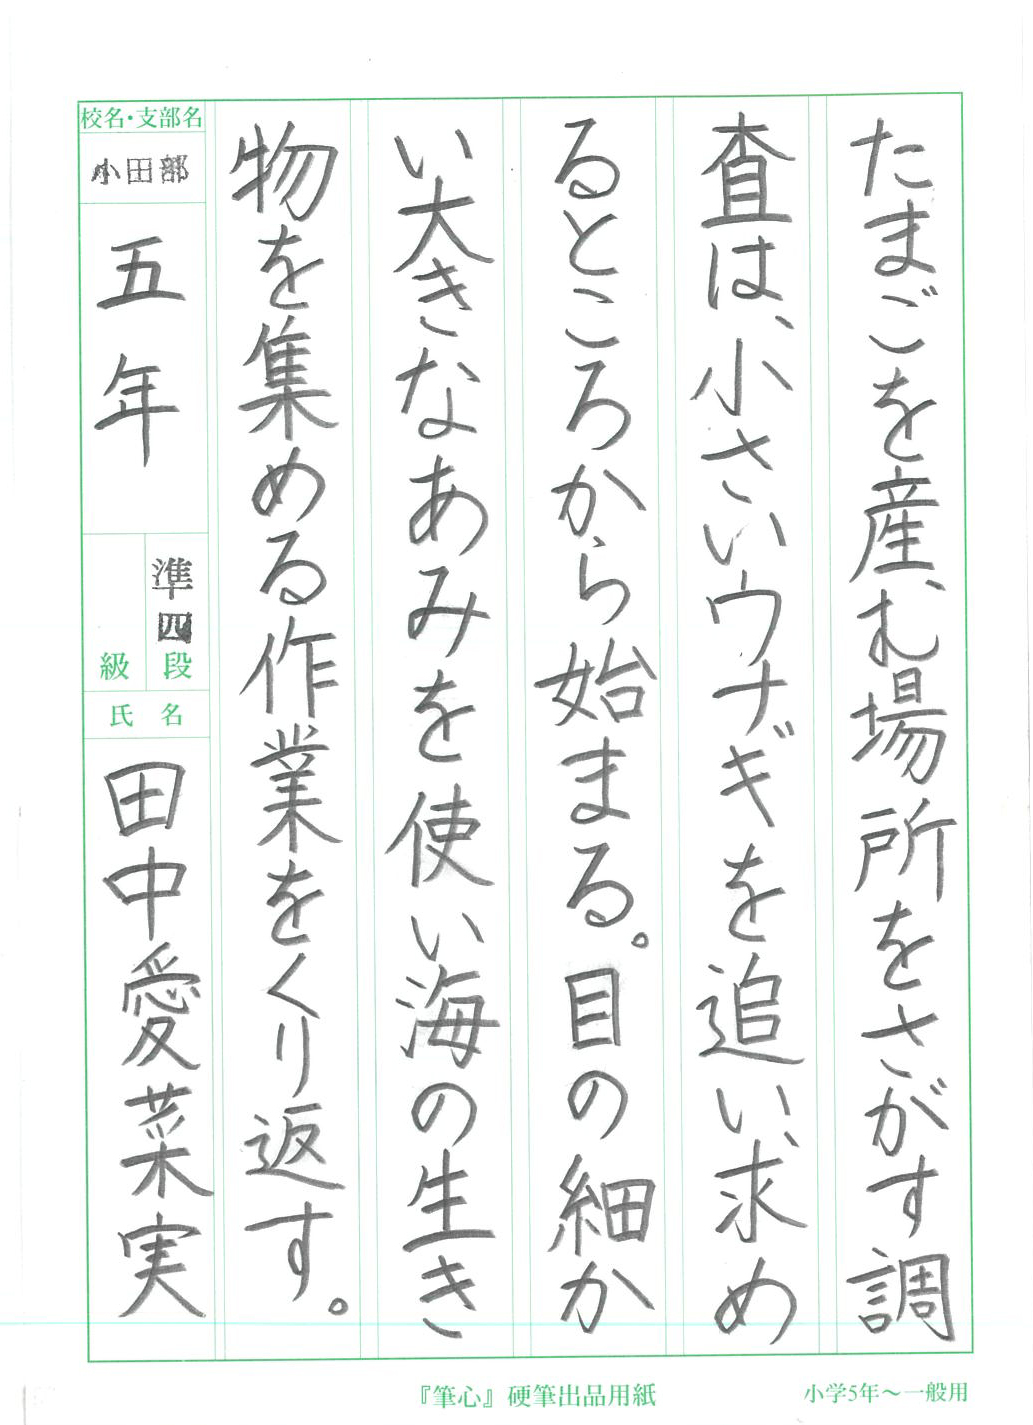 たまごを産、む場所をさがす調
査は、小さいウナギを追い、求め
るところから始まる。目の細か
い大きなあみを使い海の生き
物を集める作業をくり返す。
校名・支部名
小田部
五年
準四段
級
氏名
田中愛菜実
『筆心』硬筆出品用紙
小学5年〜一般用